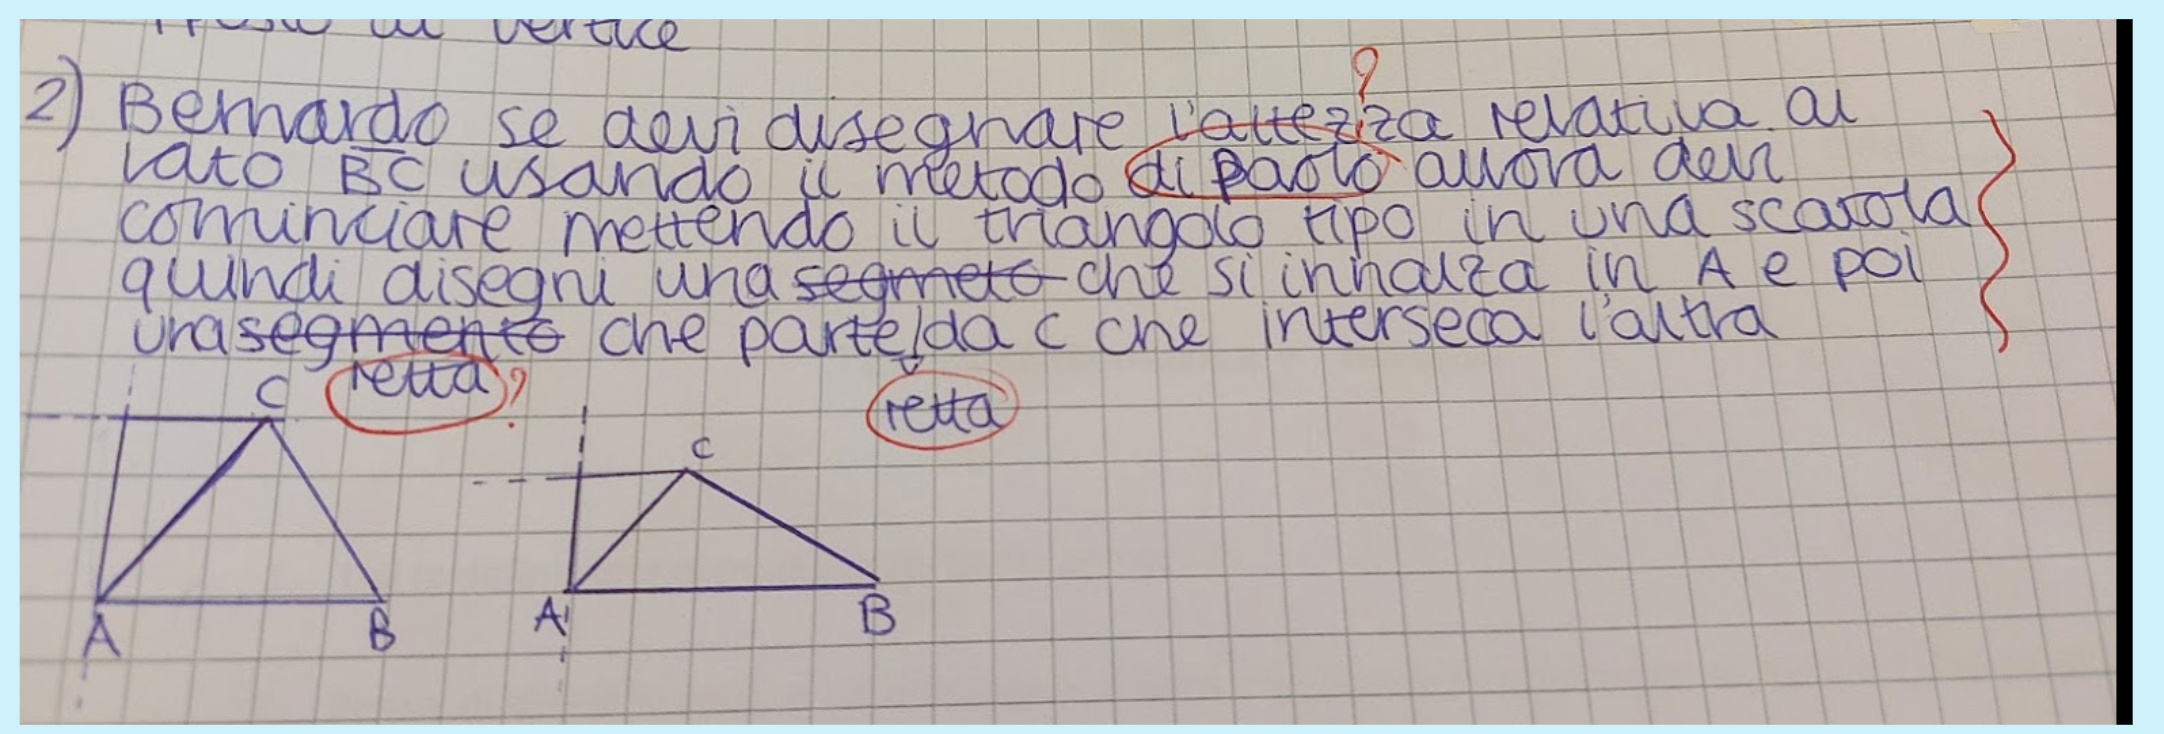 vertice
2) Bernardo se devi disegnare l'altezza relativa al
?
lato BC usando il metodo di paolo allora devi
cominciare mettendo il triangolo tipo in una scatola
quindi disegni una segmeto che si innalza in A e poi
una segmento che parte da C che interseca l'altra
retta ?
retta
C
A
B
C
A
B